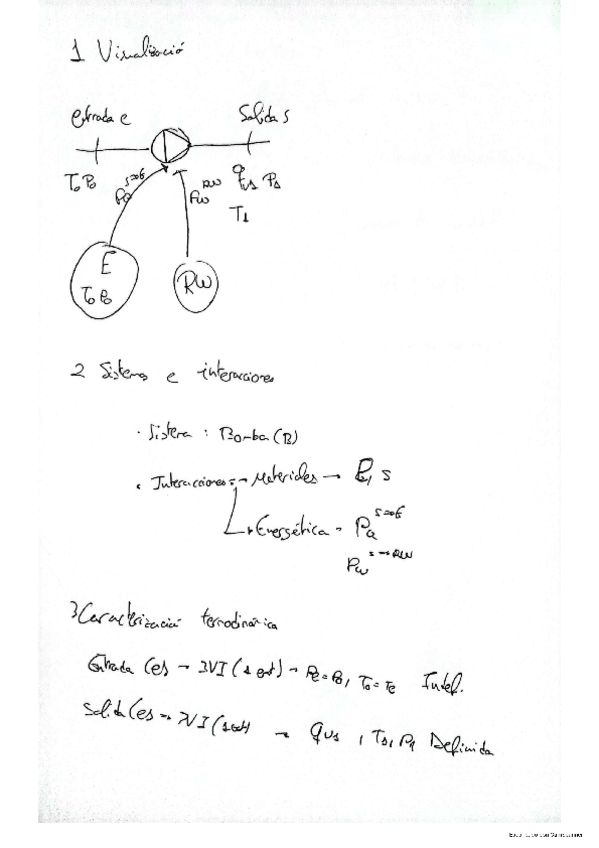 1 Visualizació
entrada e Salida s
T₀ P₀ P_Q^{s→E} P_W^{RW} q_{vs} P_s
T_s
E
T₀ P₀ RW
2 Sistema e interacciones
· Sistema : Bomba (B)
· Interacciones: → Materiales → e, s
↳ Energética - P_Q^{s→E}
P_W^{s→RW}
3 Caracterizació termodinámica
Entrada (es → 3VI (1 ext) → Pe = P₀, T₀ = Te Intef.
Salida (es → 3VI (1 ext → q_{vs}, T_s, P_s Definida